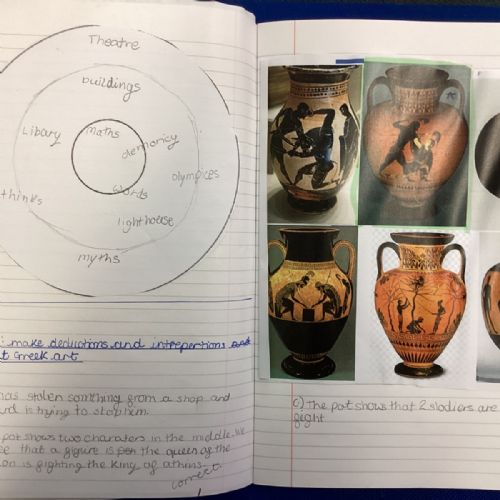 Theatre
buildings
Libary
maths
demoricy
olympices
thinks
words
lighthouse
myths
: make deductions and intrepertions
t Greek art
has stolen somthing from a shop and
rd is trying to stop him.
pot shows two charaters in the middle. We
ee that a figure is the queen of the
on is fighting the King of athins.
correct
c) The pot shows that 2 slodiers are
fight